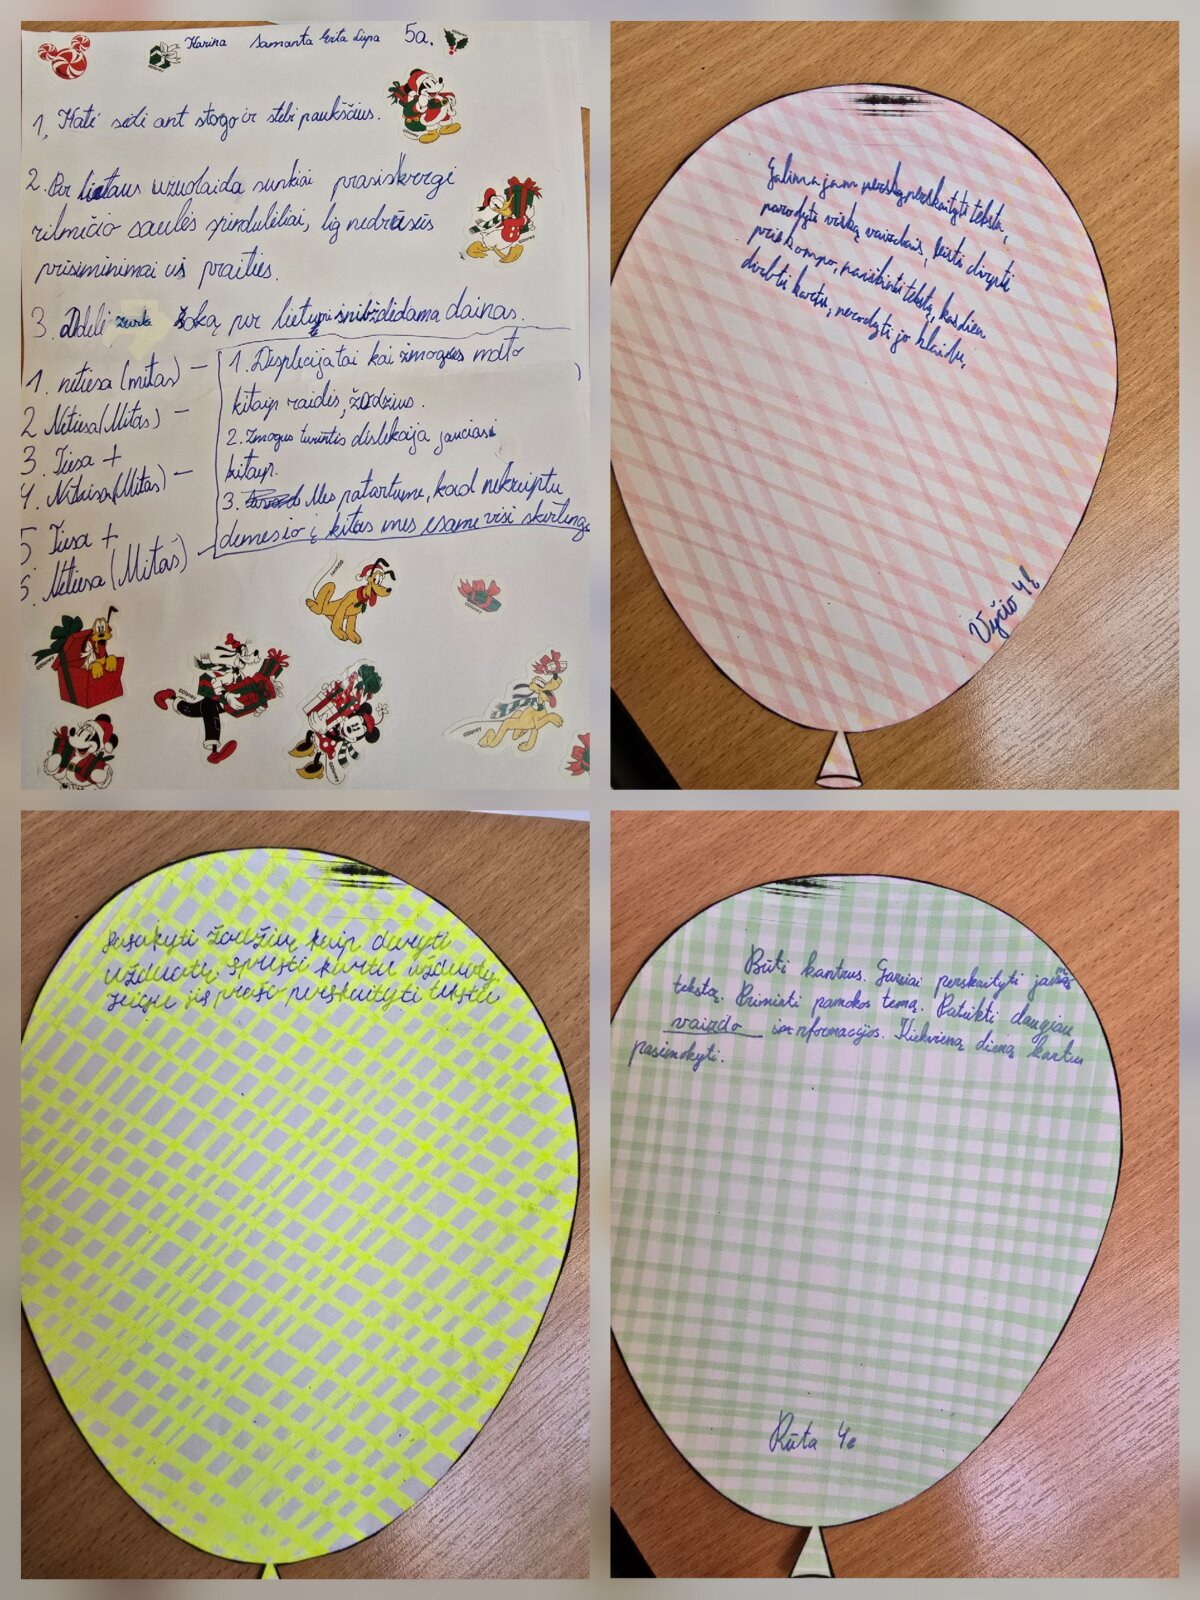 Karina Samanta Erta Liepa 5a.
1, Katė sėdi ant stogo ir stebi paukščius.
2. Per lietaus užuolaida sunkiai prasiskvergi
rilmičio saulės spinduliėliai, lig nedrąsūs
prisiminimai iš praities.
3. šoką per lietų šnibždėdama dainas.
1. netiesa (mitas) –
2 Netiesa (Mitas) –
3. Tiesa +
4. (Mitas) –
5 Tiesa +
6. Netiesa (Mitas) –
1. Displecija tai kai žmogus mato
kitaip raidis, žodžius.
2. Žmogus turintis dislekcija jaučiasi
kitaip.
3. Mes patartume, kad nekreiptu
demesio į kitas mes esame visi skirtingi
Galima jam perskaityti tekstą,
parodyti viską vaizdais, leisti dirpti
prie kompo, paaiškinti tekstą, kasdien
dirbti kartu, nerodyti jo klaidų,
Vyčio 4e
Pasakyti žodžių kaip daryti
užduotį, spręsti kartu užduotį,
jeigu jis prašo perskaityti tekstą
Būti kantrus. Garsiai perskaityti jam
tekstą. Priminti pamokos temą. Pateikti daugiau
vaizdo informacijos. Kiekvieną dieną kartu
pasimokyti.
Rūta 4e